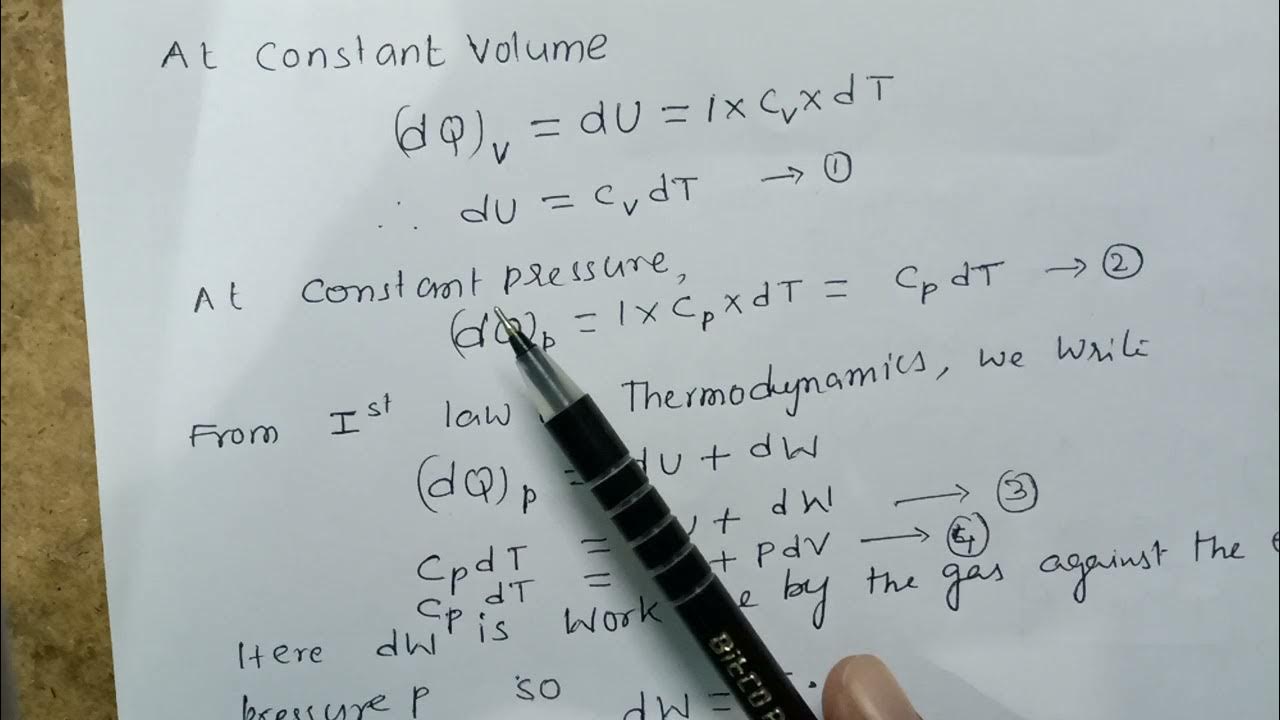 At Constant Volume
(dQ)v = dU = 1 × Cv × dT
∴ dU = CvdT → ①
At Constant pressure,
(dQ)p = 1 × Cp × dT = CpdT → ②
From Ist law Thermodynamics, we write
(dQ)p = dU + dW
CpdT = + dW → ③
CpdT = + PdV → ④
Here dW is Work by the gas against the
pressure P so dW =
BitCO